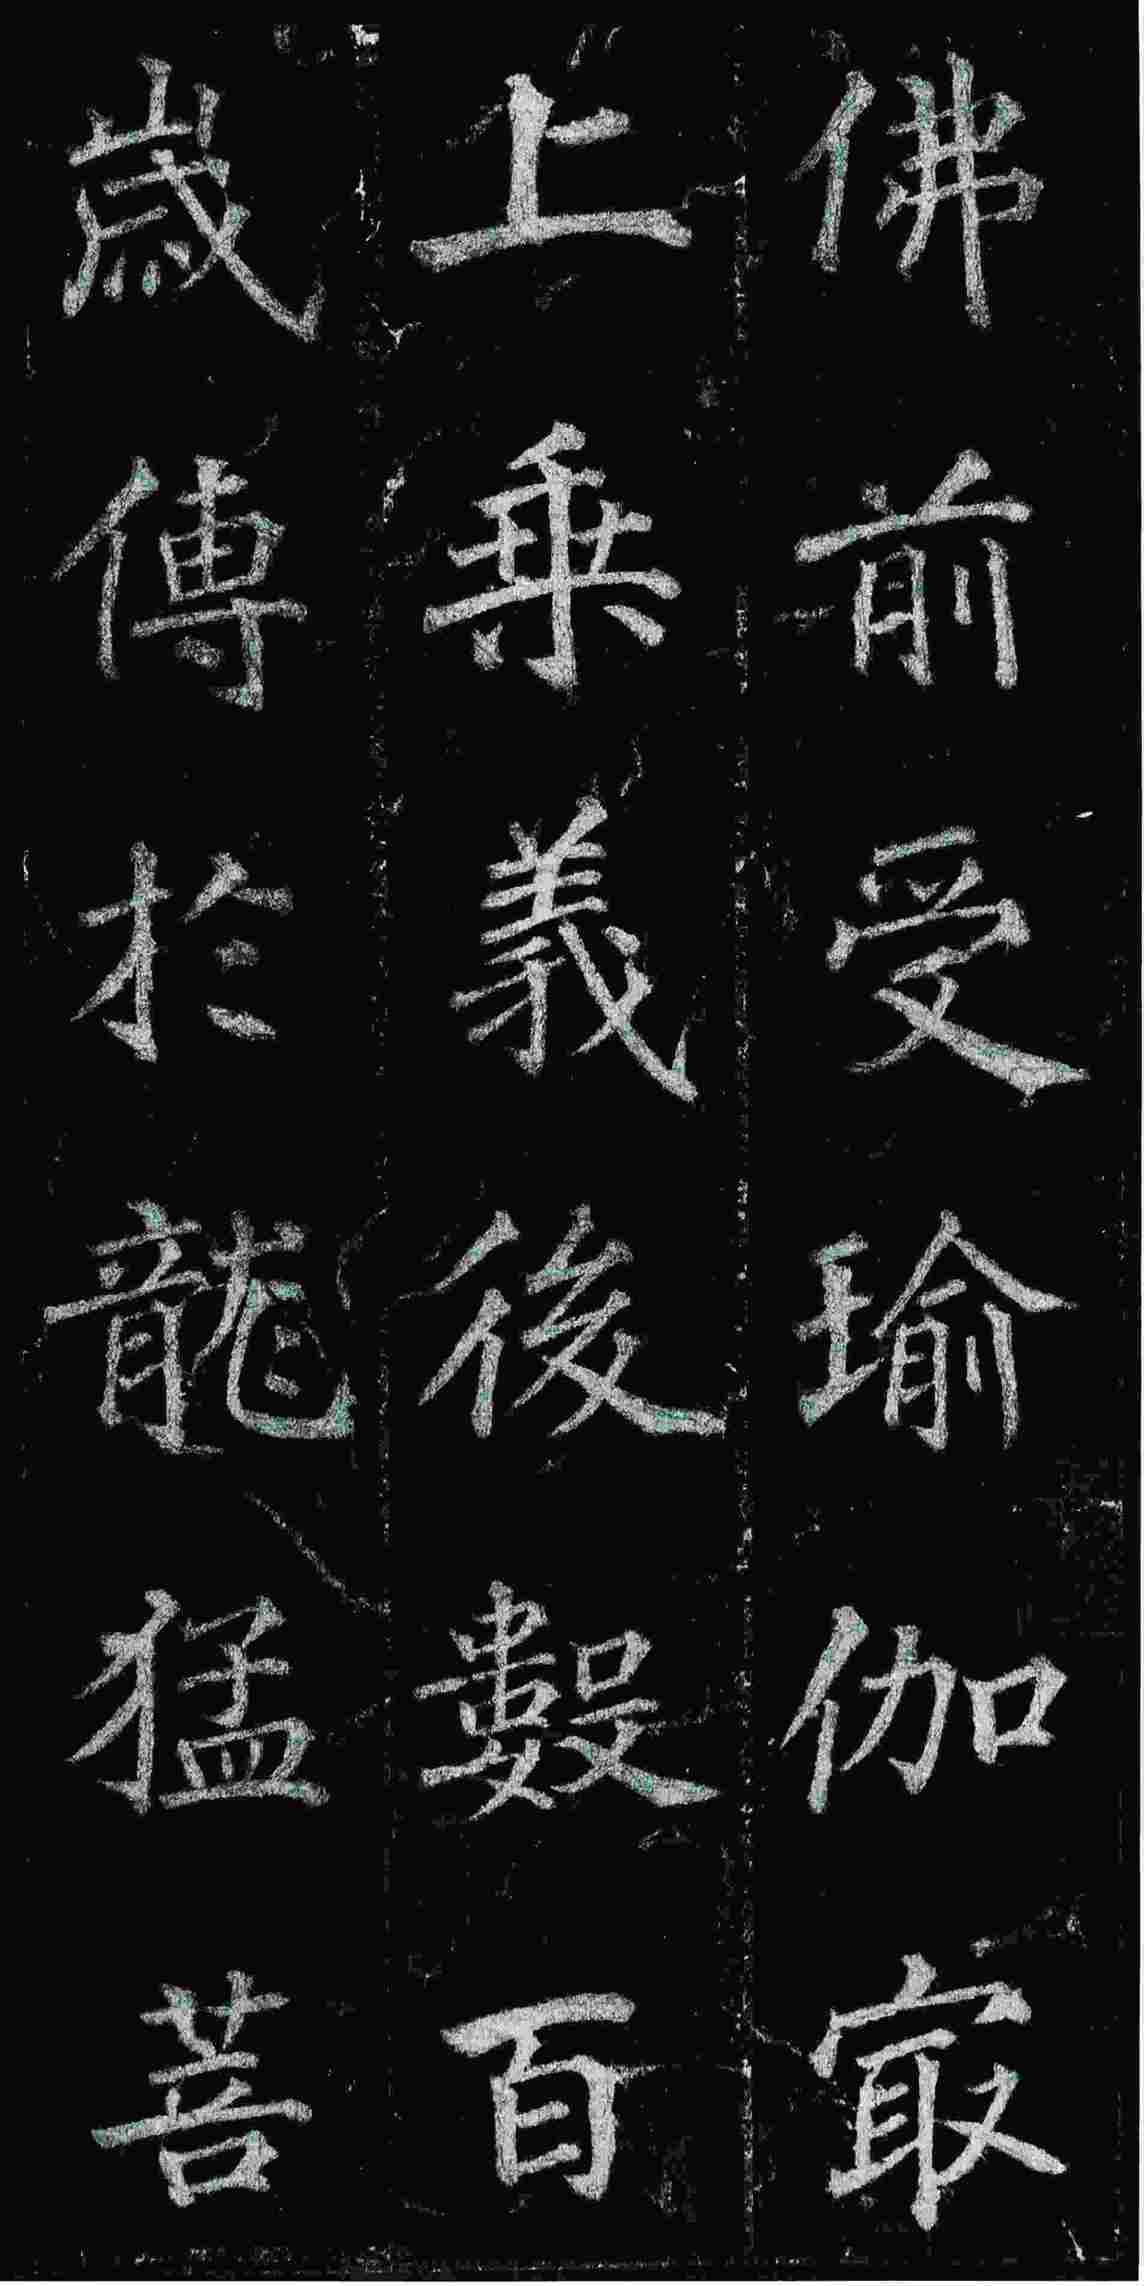 佛前受瑜伽㝡
上乗義後數百
歳傳於龍猛菩